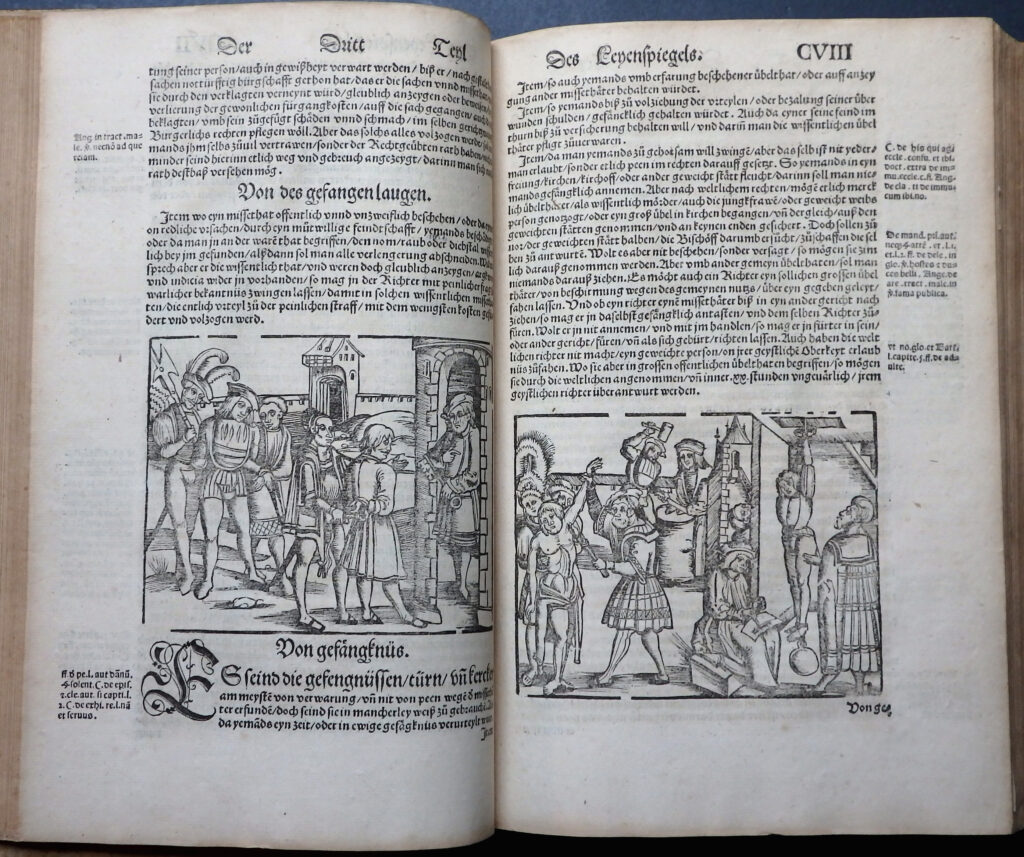 Der Dritt Teyl
tung seiner person/auch in gewißheyt verwart werden/ biß er/nach
sachen notturfftig bürgschafft gethon hat/das er die sachen vnnd missethat
sie durch den verklagten verneynt würd/gleublich anzeygen oder
verlierung der gewonlichen fürgangkosten/auff die sach gegangen/auch
beklagten/vmb sein zugefügt schäden vnnd schmach/im selben
Burgerlichs rechten pflegen wöll. Aber das solchs alles volzogen werde/
mands jhm selbs zuuil vertrawen/sonder der Rechtgeübten rath haben/
minder seind hierinn etlich weg vnd gebreuch angezeygt/darinn man sich
rath deßhalb versehen mög.
Ang. in tract. ma-
le. §. necnō ad que
relam.
Von des gefangen laugen.
Jtem wo eyn missethat offentlich vnnd vnzweiflich beschehen/oder
on redliche vrsachen/durch eyn mütwillige feindtschafft/yemands
oder da man ja an der warē that begriffen/den nom/raub oder diebstal
lich bey jm gefunden/alßdann sol man alle verlengerung abschneiden.
sprech aber er die wissentlich that/vnd weren doch gleublich anzeygen/
vnnd indicia wider jn vorhanden/so mag jn der Richter mit peinlicher
warlicher bekantnüs zwingen lassen/damit in solchen wissentlichen
ten/die entlich vrteyl zu der peinlichen straff/mit dem wenigsten kosten
dert vnd volzogen werd.
Von gefängknüs.
ES seind die gefengnüssen/türn/vñ kercker
am meystē von verwarung/vñ nit von peen wegē
ter erfundē/doch seind sie in mancherley weiß zu gebrauchē.
da yemāds eyn zeit/oder in ewige gefägknüs verurteylt
Jtem
ff. d pe. l. aut dānū.
§ solent. C. de epis.
z. cle. aut. si capti. l.
2. C. de exhi. re. l. nā
et seruus.
Des Leyenspiegels. CVIII
Jtem/so auch yemands vmb erfarung beschehener übelthat/oder auff anzey
gung ander missethäter behalten würdet.
Jtem/so yemands biß zu volziehung der vrteylen/oder bezalung seiner über
wunden schulden/gefäncklich gehalten würdet. Auch da eyner seine feind im
thurn biß zu versicherung behalten will/vnd darin man die wissentlichen übel
thäter pfligt zuuerwaren.
Jtem/da man yemands zu gehorsam will zwingē/aber das selb ist nit yeder-
man erlaubt/sonder etlich peen im rechten darauff gesetzt. So yemands in eyn
freiung/kirchen/kirchoff/oder ander geweicht stätt fleucht/darinn soll man nie-
mands gefäncklich annemen. Aber nach weltlichem rechten/mögē etlich merck
lich übelthäter/als wissentlich mörder/auch die jungkfrawē/oder geweicht weibs
person genotzogt/oder eyn groß übel in kirchen begangen/vñ der gleich/auß den
geweichten stätten genommen/vnd an keynen enden gesichert. Doch sollen zu-
uor/der geweichten stätt halben/die Bischöff darumb ersucht/zuschaffen die sel
ben zu antwurtē. Wolt es aber nit beschehen/sonder versagt/so mögen sie zim
lich darauß genommen werden. Aber vmb ander gemeyn übelthaten/sol man
niemands darauß ziehen. Es möcht auch ein Richter eyn sollichen grossen übel
thäter/von beschirmung wegen des gemeynen nutzs/über eyn gegeben geleyt/
fahen lassen. Vnd ob eyn richter eynē missethäter biß in eyn ander gericht nach
ziehen/so mag er jn daselbst gefäncklich antasten/vnd dem selben Richter zu-
füren. Wolt er jn nit annemen/vnd mit jm handlen/so mag er jn fürter in sein/
oder ander gericht/füren/vñ als sich gebürt/richten lassen. Auch haben die welt
lichen richter nit macht/eyn geweichte person/on jrer geystlichē Oberkeyt erlaub
nüs zufahen. Wo sie aber in grossen offentlichen übelthaten begriffen/so mögen
sie durch die weltlichen angenommen/vñ inner .xx. stunden vngeuärlich/jrem
geystlichen richter überantwurt werden.
C. de his qui ad
eccle. confu. et ibi
doct. extra de im
mu. eccle. c. fi. Ang.
de cla. ti de immu.
cum ibi. no.
De mand. pri. aut.
et. l. 2. ff. de dele. in
glo. §. hostes z du
ces belli. Ange. de
are. tract. male. in
§. fama publica.
vt no. glo. et Bart.
l. capite. 5. ff. de ad
ulte.
Von ge-